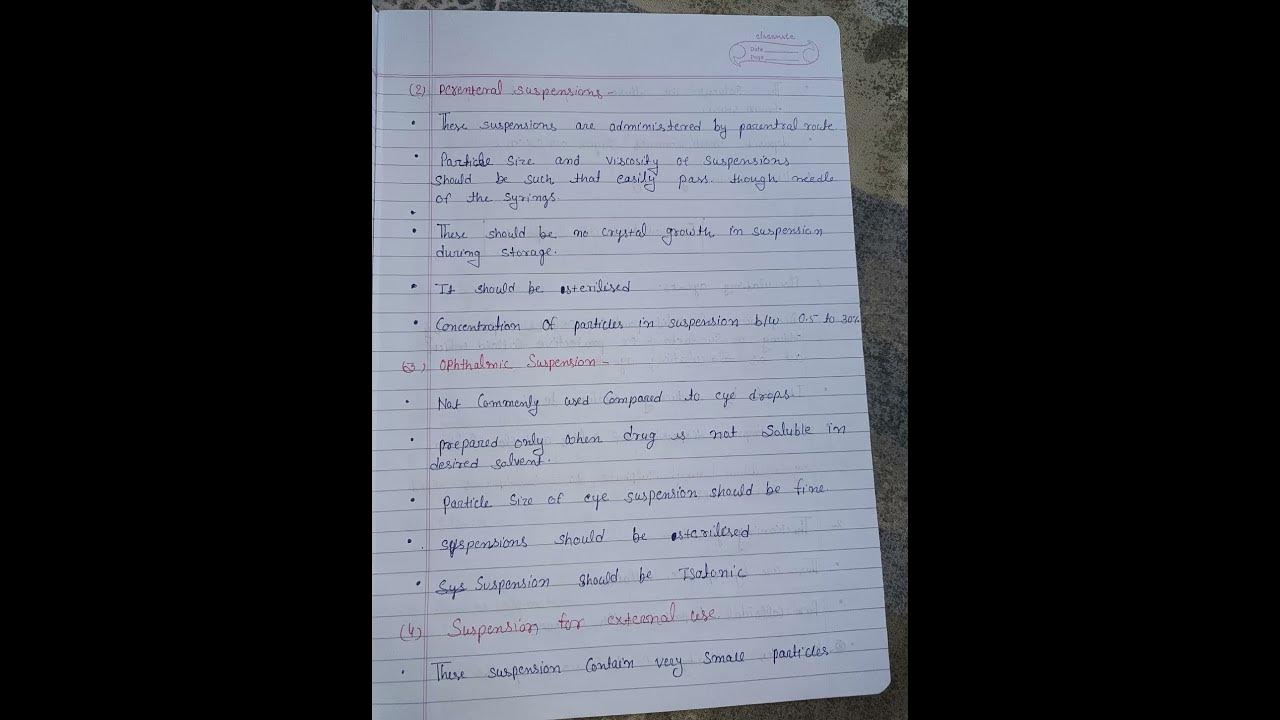 classmate
Date
Page
(2) Parenteral suspensions -
• These suspensions are administered by parentral route
• Particle size and viscosity of suspensions
should be such that easily pass. though needle
of the syrings.
•
• These should be no crystal growth in suspension
during storage.
• It should be sterilised
• Concentration of particles in suspension b/w 0.5 to 30%
(3) Ophthalmic Suspension -
• Not Commenly used Compared to eye drops
• prepared only when drug is not Soluble in
desired solvent.
• Particle Size of eye suspension should be fine.
• syspensions should be sterilised
• Sys Suspension should be Isotonic
(4) Suspension for external use
• These suspension Contain very small particles